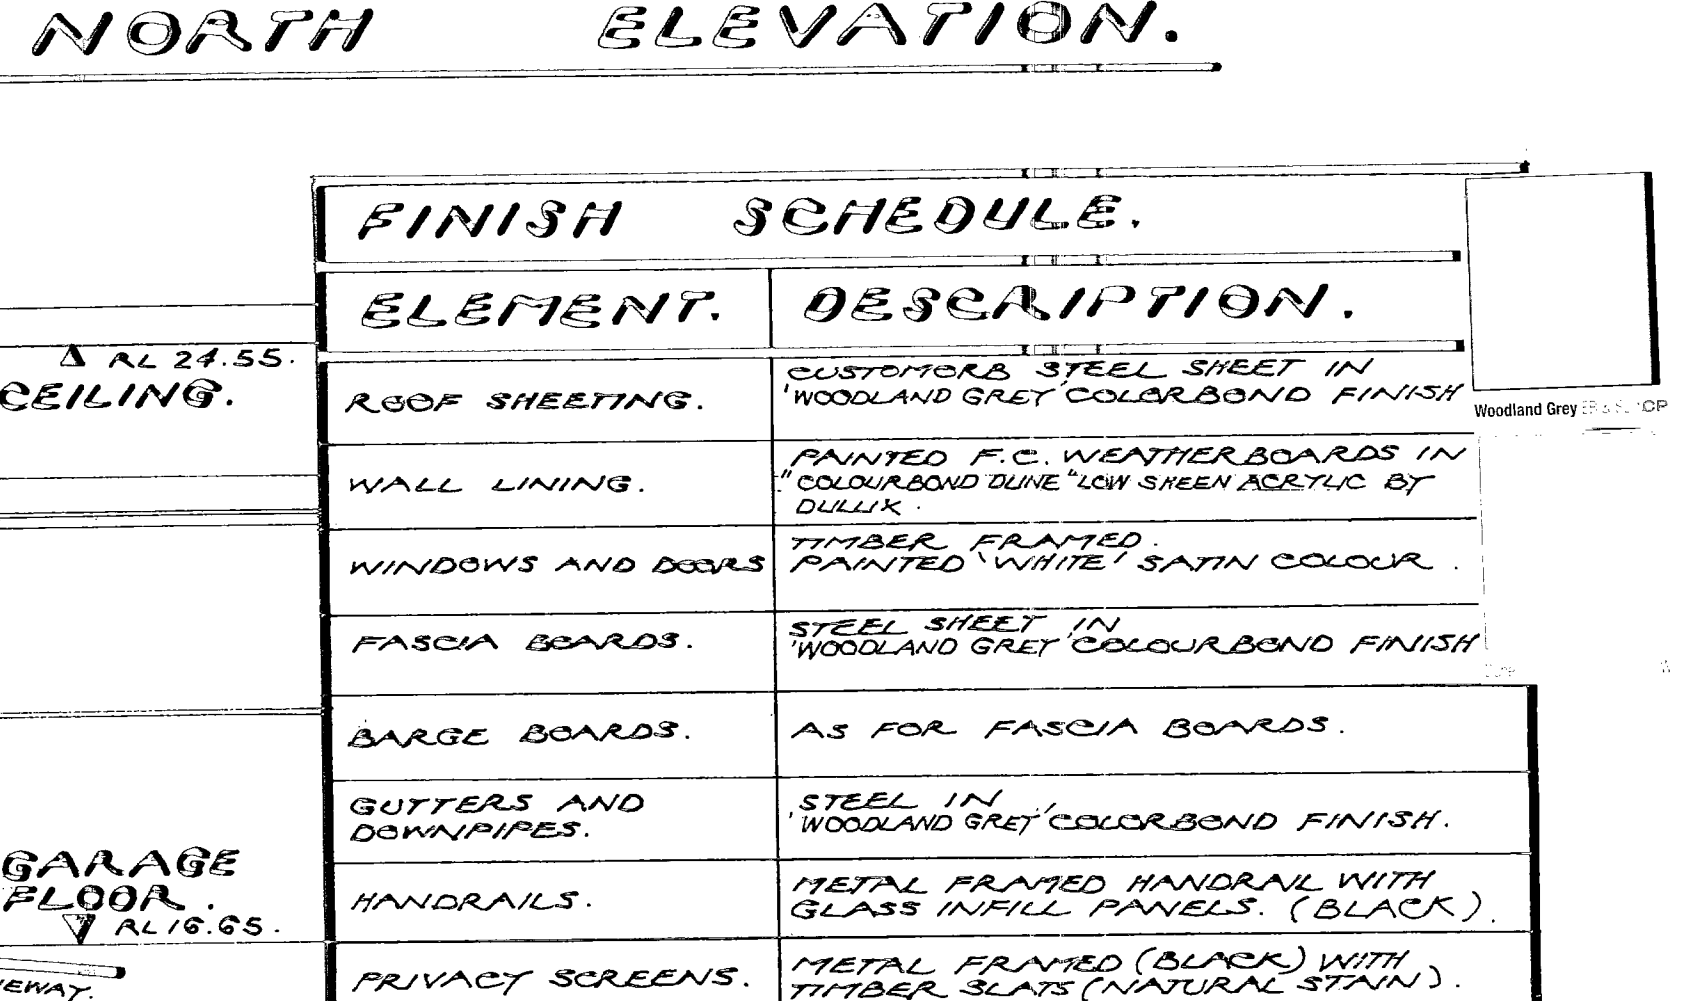 NORTH ELEVATION.
FINISH SCHEDULE.
ELEMENT. DESCRIPTION.
RL 24.55.
CEILING.
ROOF SHEETING.
CUSTOMORB STEEL SHEET IN
'WOODLAND GREY' COLORBOND FINISH
Woodland Grey
WALL LINING.
PAINTED F.C. WEATHERBOARDS IN
"COLOURBOND DUNE" LOW SHEEN ACRYLIC BY
DULUX.
WINDOWS AND DOORS
TIMBER FRAMED.
PAINTED 'WHITE' SATIN COLOUR.
FASCIA BOARDS.
STEEL SHEET IN
'WOODLAND GREY' COLOURBOND FINISH
BARGE BOARDS.
AS FOR FASCIA BOARDS.
GUTTERS AND
DOWNPIPES.
STEEL IN
'WOODLAND GREY' COLORBOND FINISH.
GARAGE
FLOOR.
RL 16.65.
HANDRAILS.
METAL FRAMED HANDRAIL WITH
GLASS INFILL PANELS. (BLACK).
EWAY.
PRIVACY SCREENS.
METAL FRAMED (BLACK) WITH
TIMBER SLATS (NATURAL STAIN).